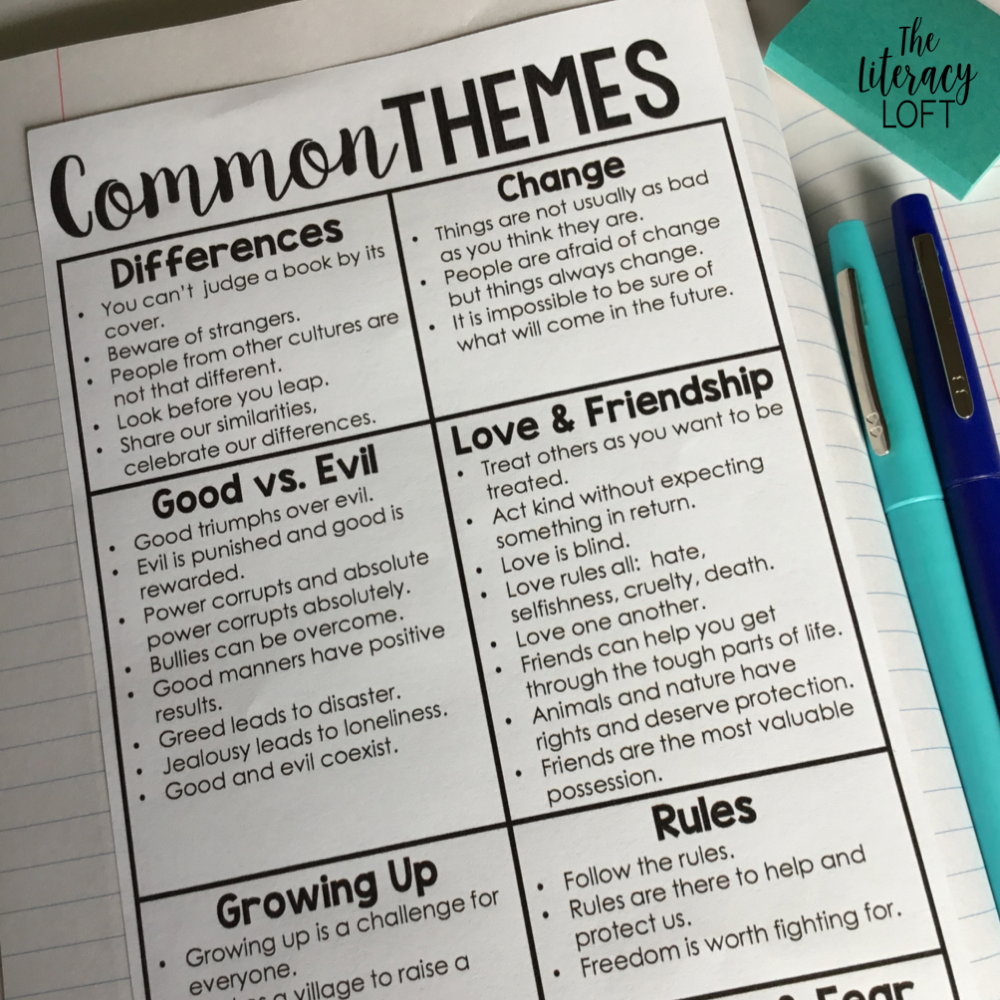 The
Literacy
LOFT
Common THEMES
Differences
• You can't judge a book by its
cover.
• Beware of strangers.
• People from other cultures are
not that different.
• Look before you leap.
• Share our similarities,
celebrate our differences.
Change
• Things are not usually as bad
as you think they are.
• People are afraid of change
but things always change.
• It is impossible to be sure of
what will come in the future.
Good vs. Evil
• Good triumphs over evil.
• Evil is punished and good is
rewarded.
• Power corrupts and absolute
power corrupts absolutely.
• Bullies can be overcome.
• Good manners have positive
results.
• Greed leads to disaster.
• Jealousy leads to loneliness.
• Good and evil coexist.
Love & Friendship
• Treat others as you want to be
treated.
• Act kind without expecting
something in return.
• Love is blind.
• Love rules all: hate,
selfishness, cruelty, death.
• Love one another.
• Friends can help you get
through the tough parts of life.
• Animals and nature have
rights and deserve protection.
• Friends are the most valuable
possession.
Growing Up
• Growing up is a challenge for
everyone.
a village to raise a
Rules
• Follow the rules.
• Rules are there to help and
protect us.
• Freedom is worth fighting for.
& Fear